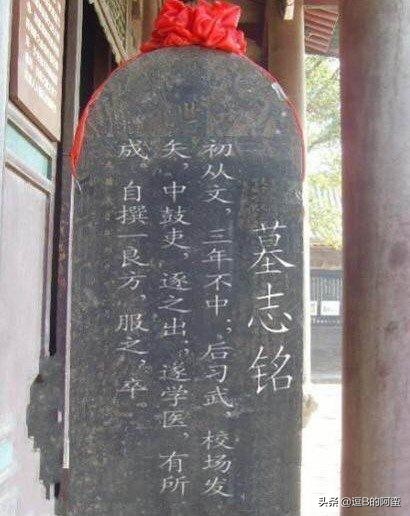 墓志铭
初从文，三年不中；后习武，校场发
矢，中鼓吏，逐之出；遂学医，有所
成。自撰一良方，服之，卒。
头条 @逗B的阿蛋